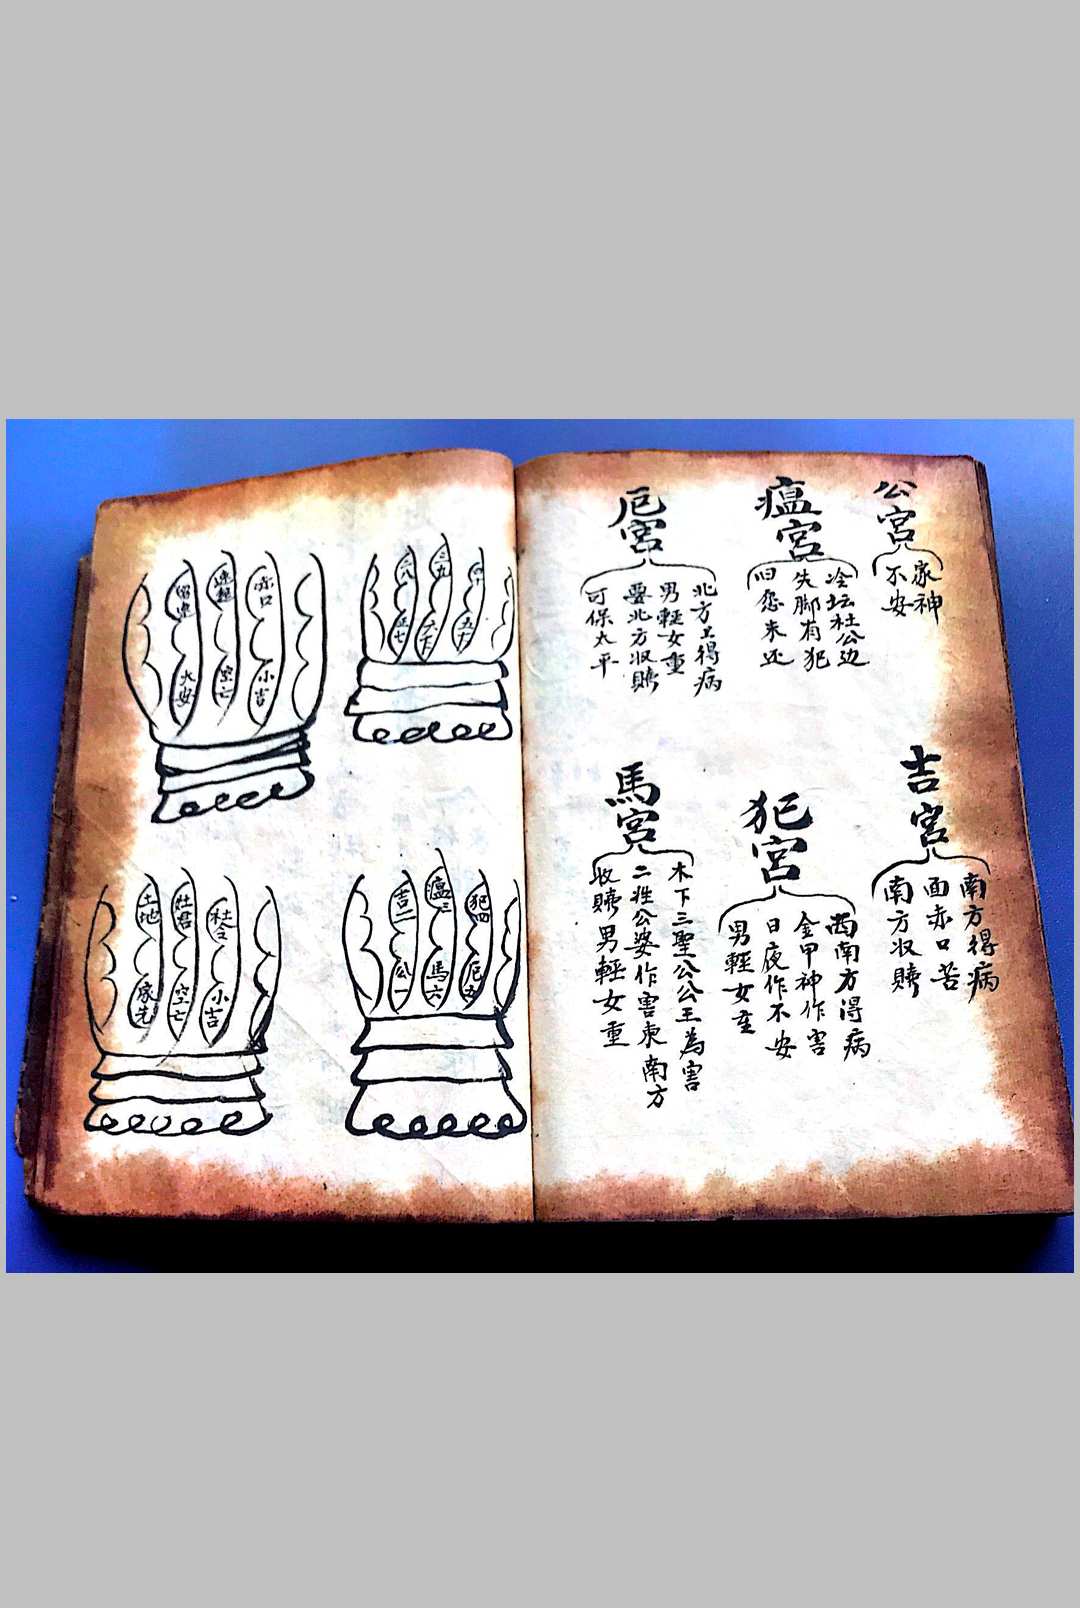 公宮
家神
不安
瘟宮
冷坛社公边
失脚有犯
旧愿未还
厄宮
北方上得病
男輕女重
要北方收贖
可保太平
吉宮
南方得病
面赤口苦
南方収贖
犯宮
西南方得病
金甲神作害
日夜作不安
男輕女重
馬宮
木下三聖公公王為害
二姓公婆作害東南方
收贖男輕女重
三九
二八
五十
六
正七
赤口
速喜
留連
小吉
空亡
大安
犯四
瘟三
吉二
厄五
馬六
公一
社令
灶君
土地
小吉
空亡
家先